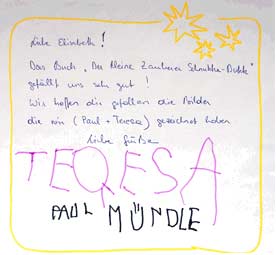 Liebe Elisabeth!
Das Buch "Der kleine Zauberer
gefällt uns sehr gut!
Wir hoffen dir gefallen die Bilder
die wir (Paul + Teresa) gezeichnet haben.
Liebe Grüße
TERESA
PAUL MÜNDLE